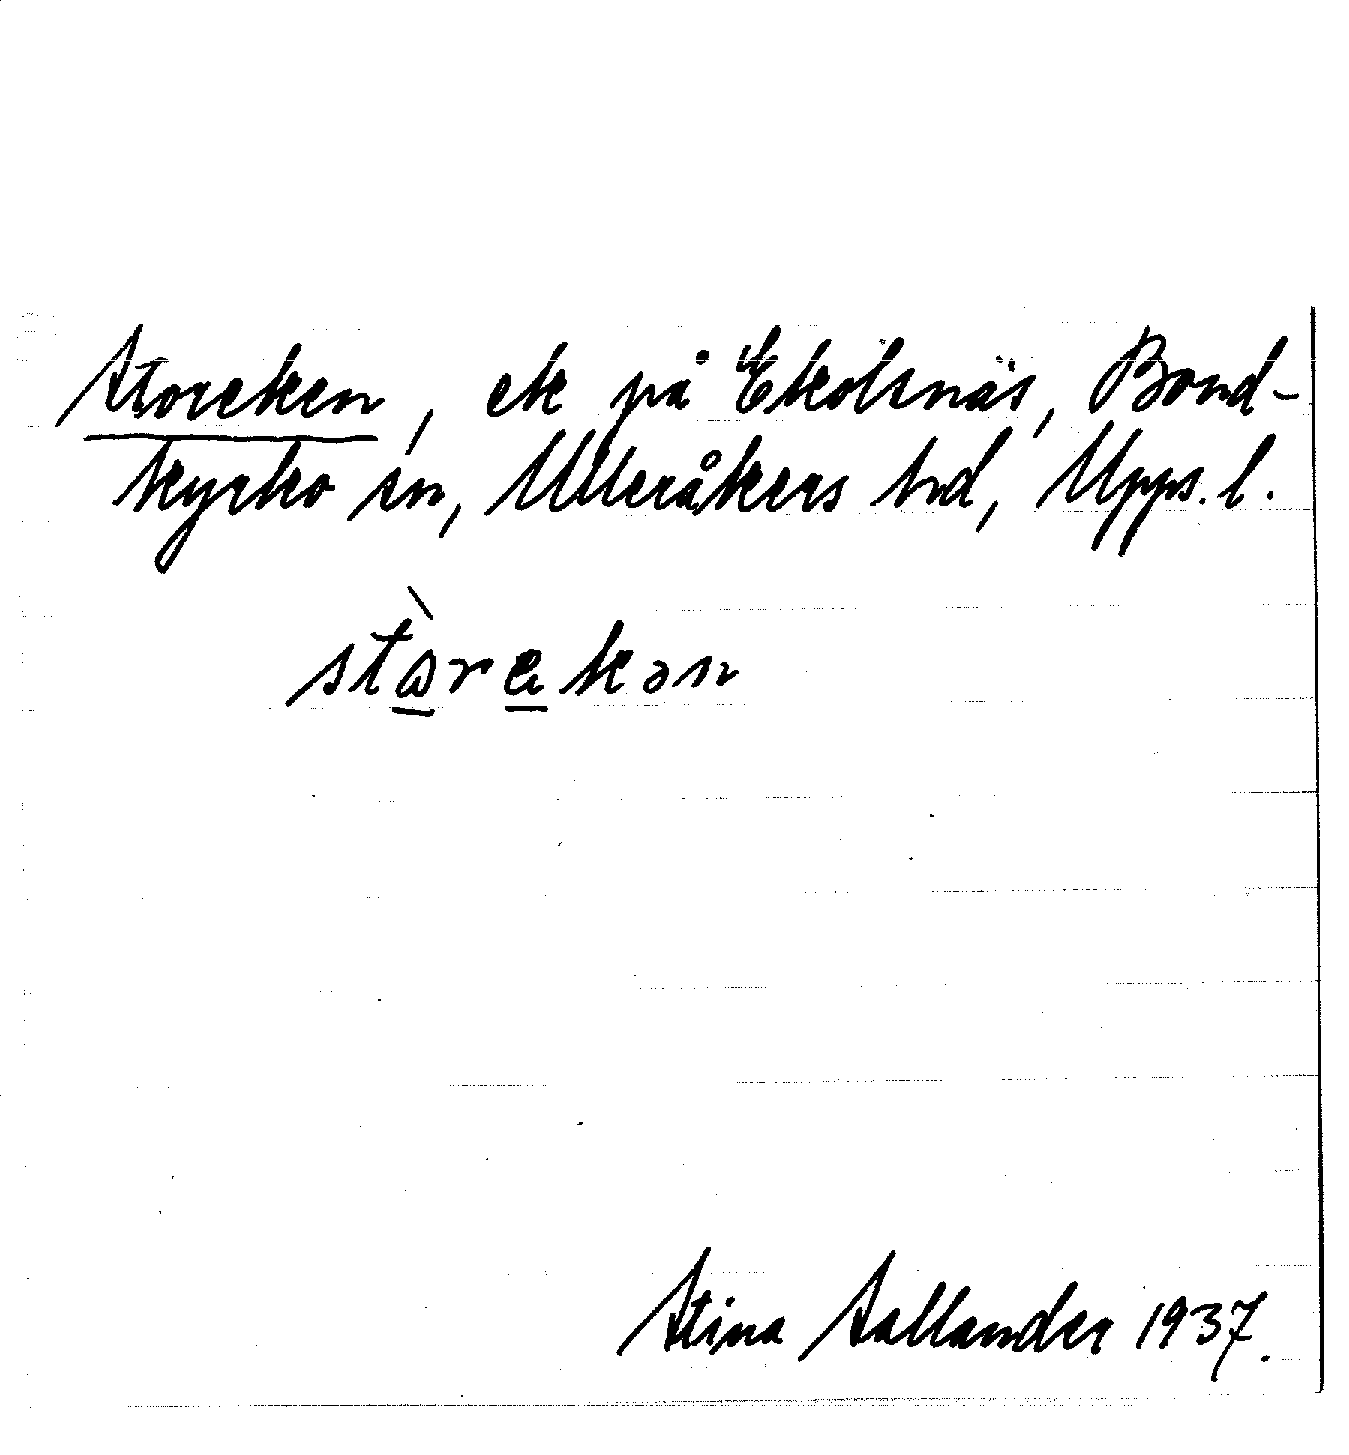 Storeken, ek på Ekolsnäs, Bond-
kyrko sn, Ulleråkers hd, Upps. l.
Stina Sallander 1937.